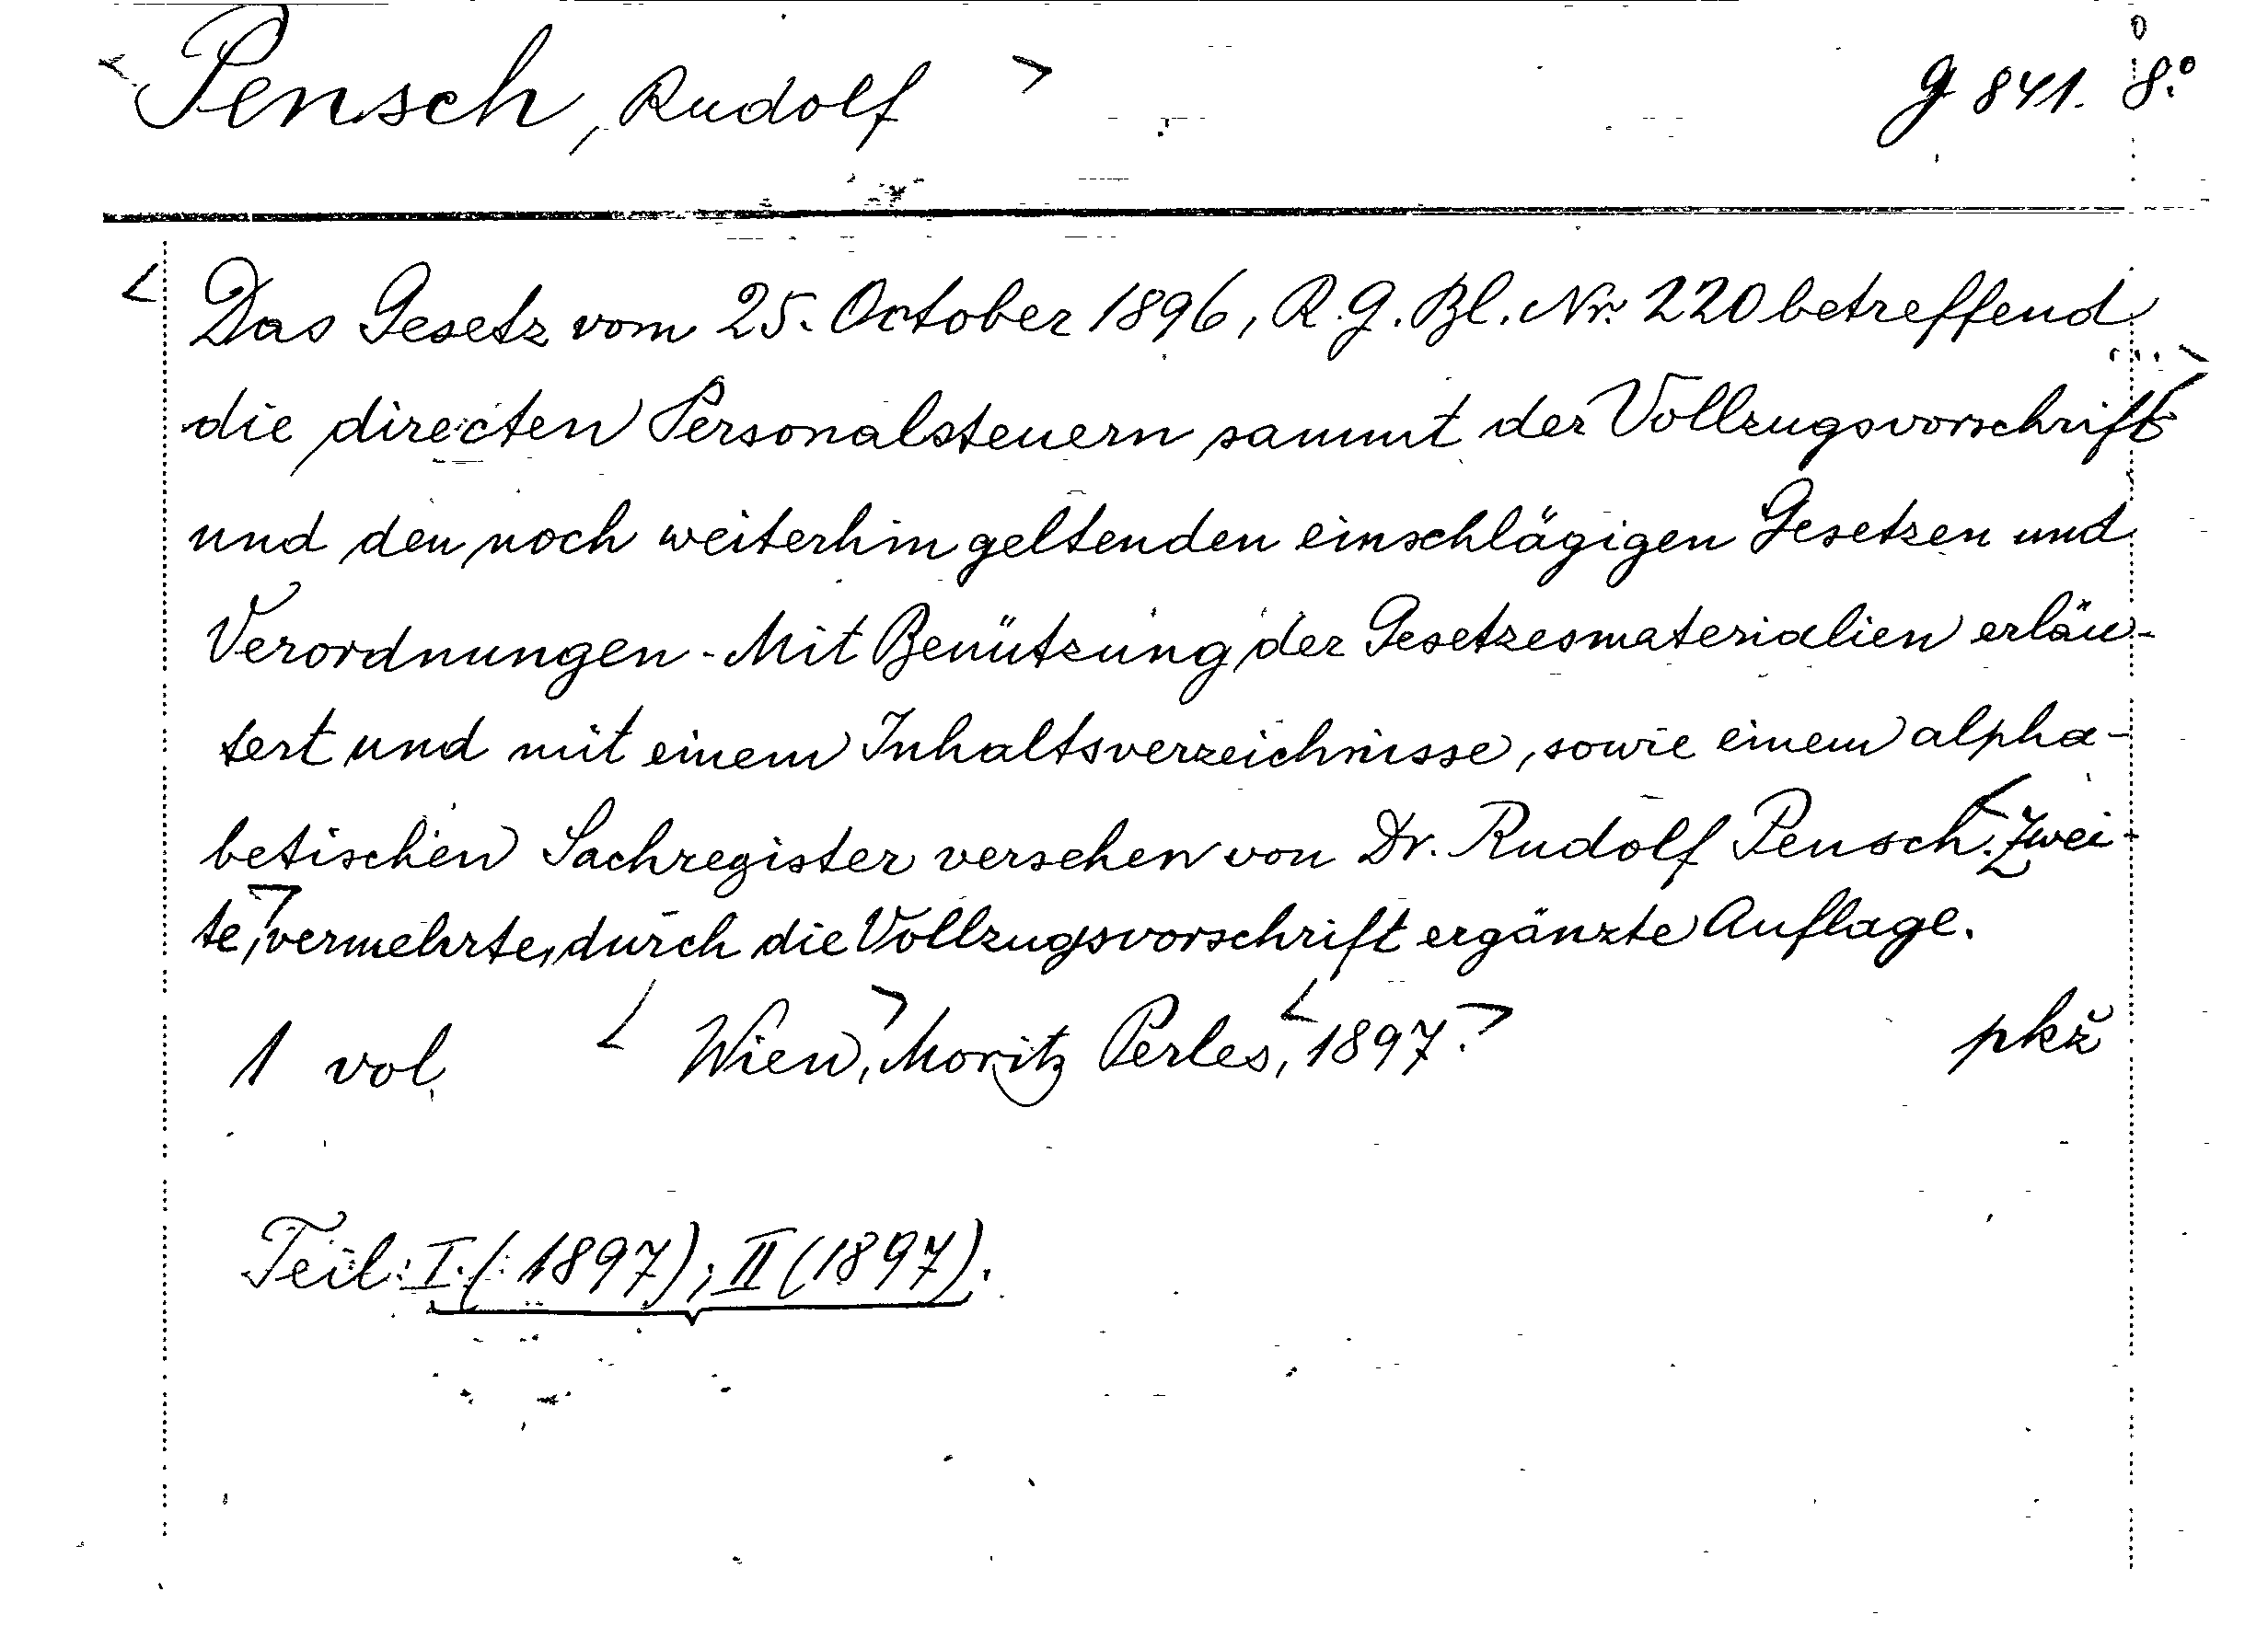 < Pensch, Rudolf > g 841. 8.º
< Das Gesetz vom 25. October 1896, R. G. Bl. Nr. 220 betreffend
die directen Personalsteuern sammt der Vollzugsvorschrift
und den noch weiterhin geltenden einschlägigen Gesetzen und
Verordnungen - Mit Benützung der Gesetzesmaterialien erläu-
tert und mit einem Inhaltsverzeichnisse, sowie einem alpha-
betischen Sachregister versehen von Dr. Rudolf Pensch. < Zwei-
te, > vermehrte, durch die Vollzugsvorschrift ergänzte Auflage.
1 vol. < Wien, > Moritz Perles, < 1897. > pkž
Teil: I. (1897); II (1897).